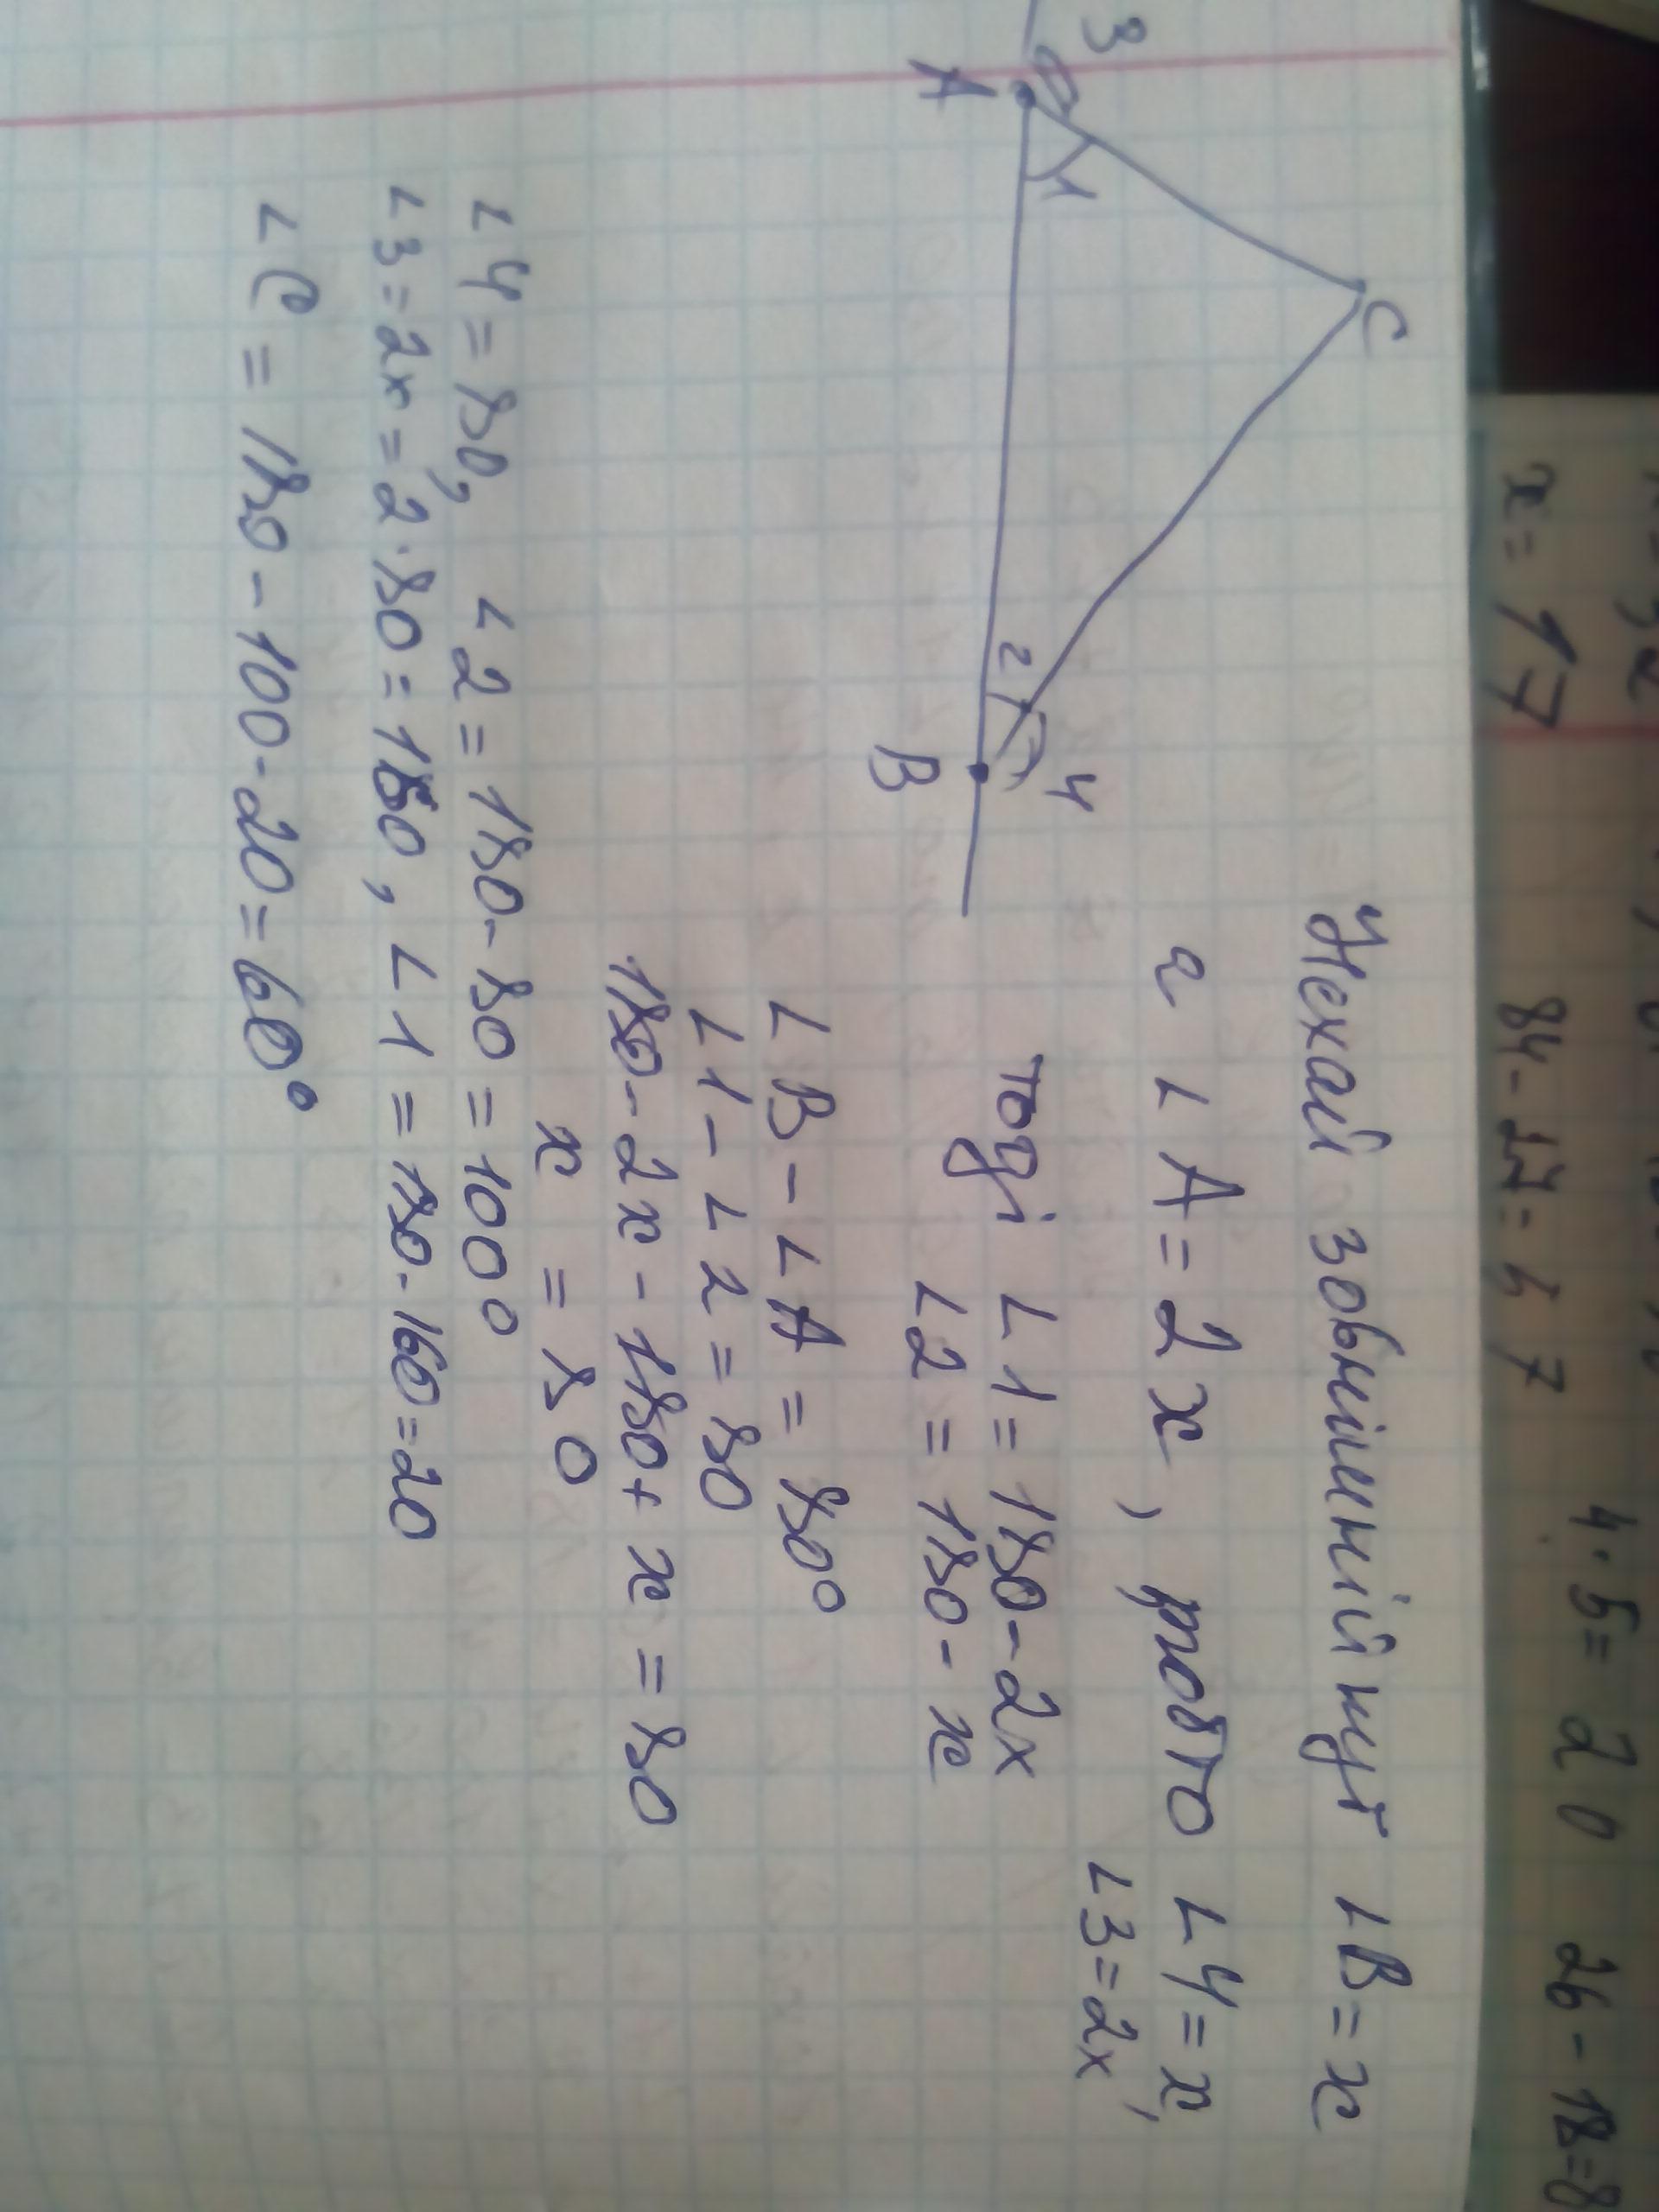 x = 17
84 - 27 = 57
4 · 5 = 20
26 - 18 = 8
3
A
1
C
2
4
B
Нехай зовнішній кут ∟B = x
а ∟A = 2x, тобто ∟4 = x,
∟3 = 2x
тоді ∟1 = 180 - 2x
∟2 = 180 - x
∟B - ∟A = 80°
∟1 - ∟2 = 80
180 - 2x - 180 + x = 80
x = 80
∟4 = 80, ∟2 = 180 - 80 = 100°
∟3 = 2x = 2 · 80 = 160, ∟1 = 180 - 160 = 20
∟C = 180 - 100 - 20 = 60°